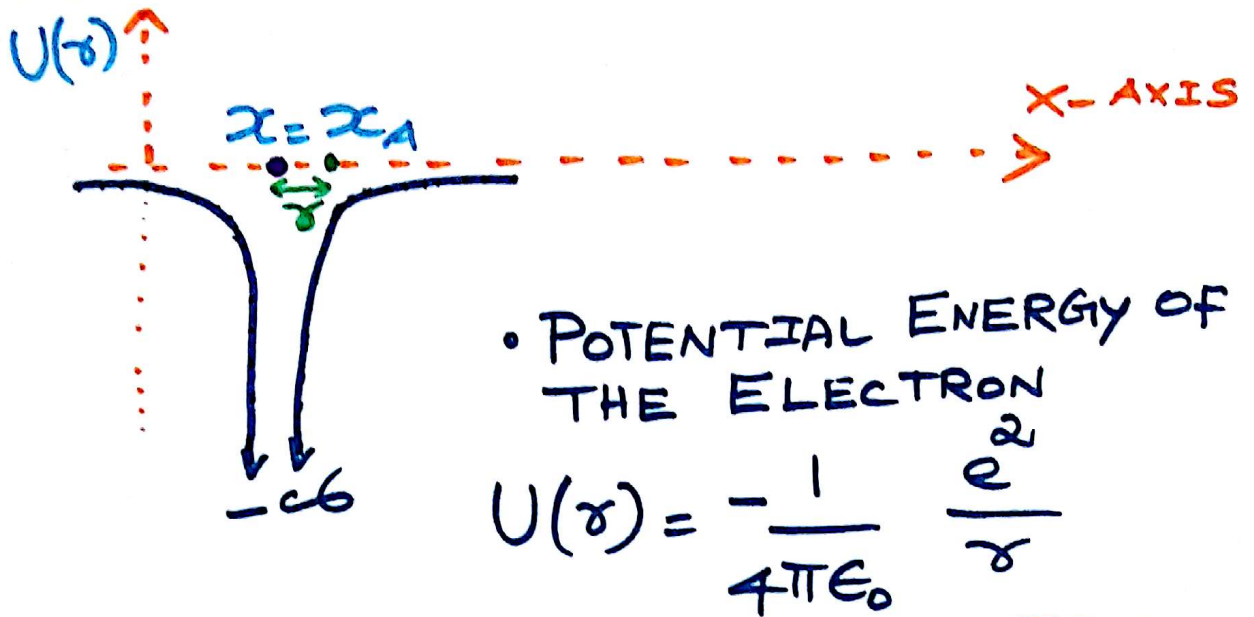 U(r)
X-AXIS
x = x_A
r
-∞
• POTENTIAL ENERGY OF
THE ELECTRON
U(r) = - 1/(4πε₀) e²/r